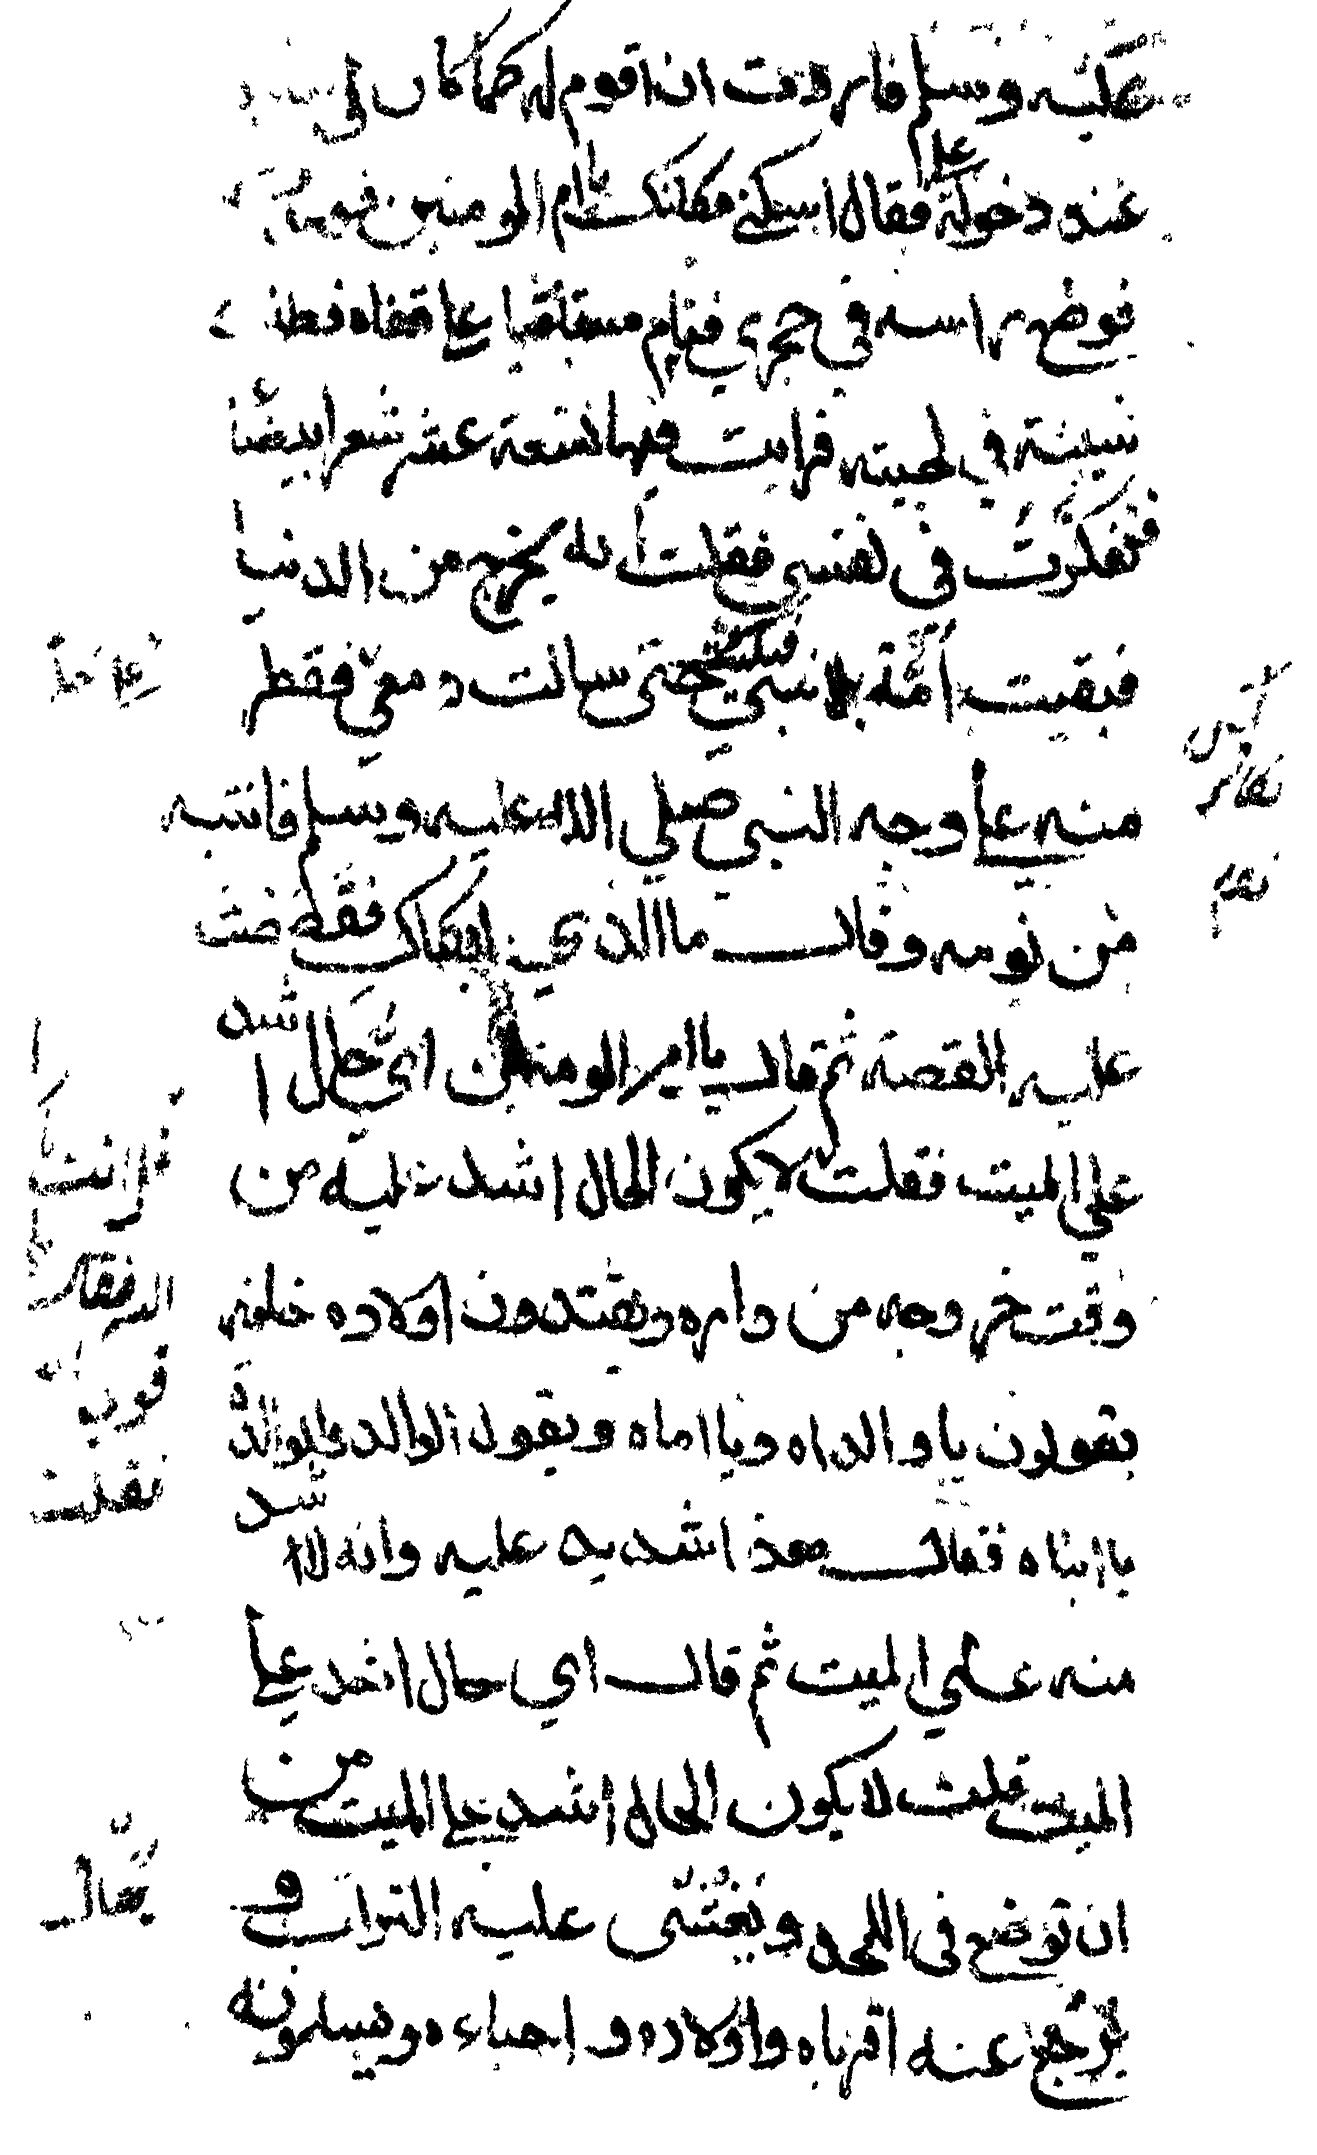 عليه وسلم فاردت ان اقوم له كما كان لي
عند دخوله علي فقال اسكني مكانك يا ام المومنين
فوضع راسه في حجري فنام مستلقيا على قفاه فطلـ
شيبته في لحيته فرايت فيها تسعة عشر شعرا بيضا
فتفكرت في نفسي فقلت انه يخرج من الدنيا
فبقيت امة بلا نبي فبكيت حتى سالت دمعي فقطر
منه على وجه النبي صلي الله عليه وسلم فانتبه
من نومه وقال ما الذي ابكاك فقصصت
عليه القصة ثم قال يا ام المومنين اي حال اشد
علي الميت فقلت لا يكون الحال اشد عليه من
وقت خروجه من داره ويقتدون اولاده خلفه
يقولون يا والداه ويا اماه ويقول الوالد والوالدة
يا ابناه فقال هذا شديد عليه وانه لا اشد
منه علي الميت ثم قال اي حال اشد على
الميت قلت لا يكون الحال اشد على الميت من
ان توضع في اللحد ويحثى عليه التراب و
يرجع عنه اقرباه واولاده و احباءه ويسلمونه
نعم
فقلت
فقال